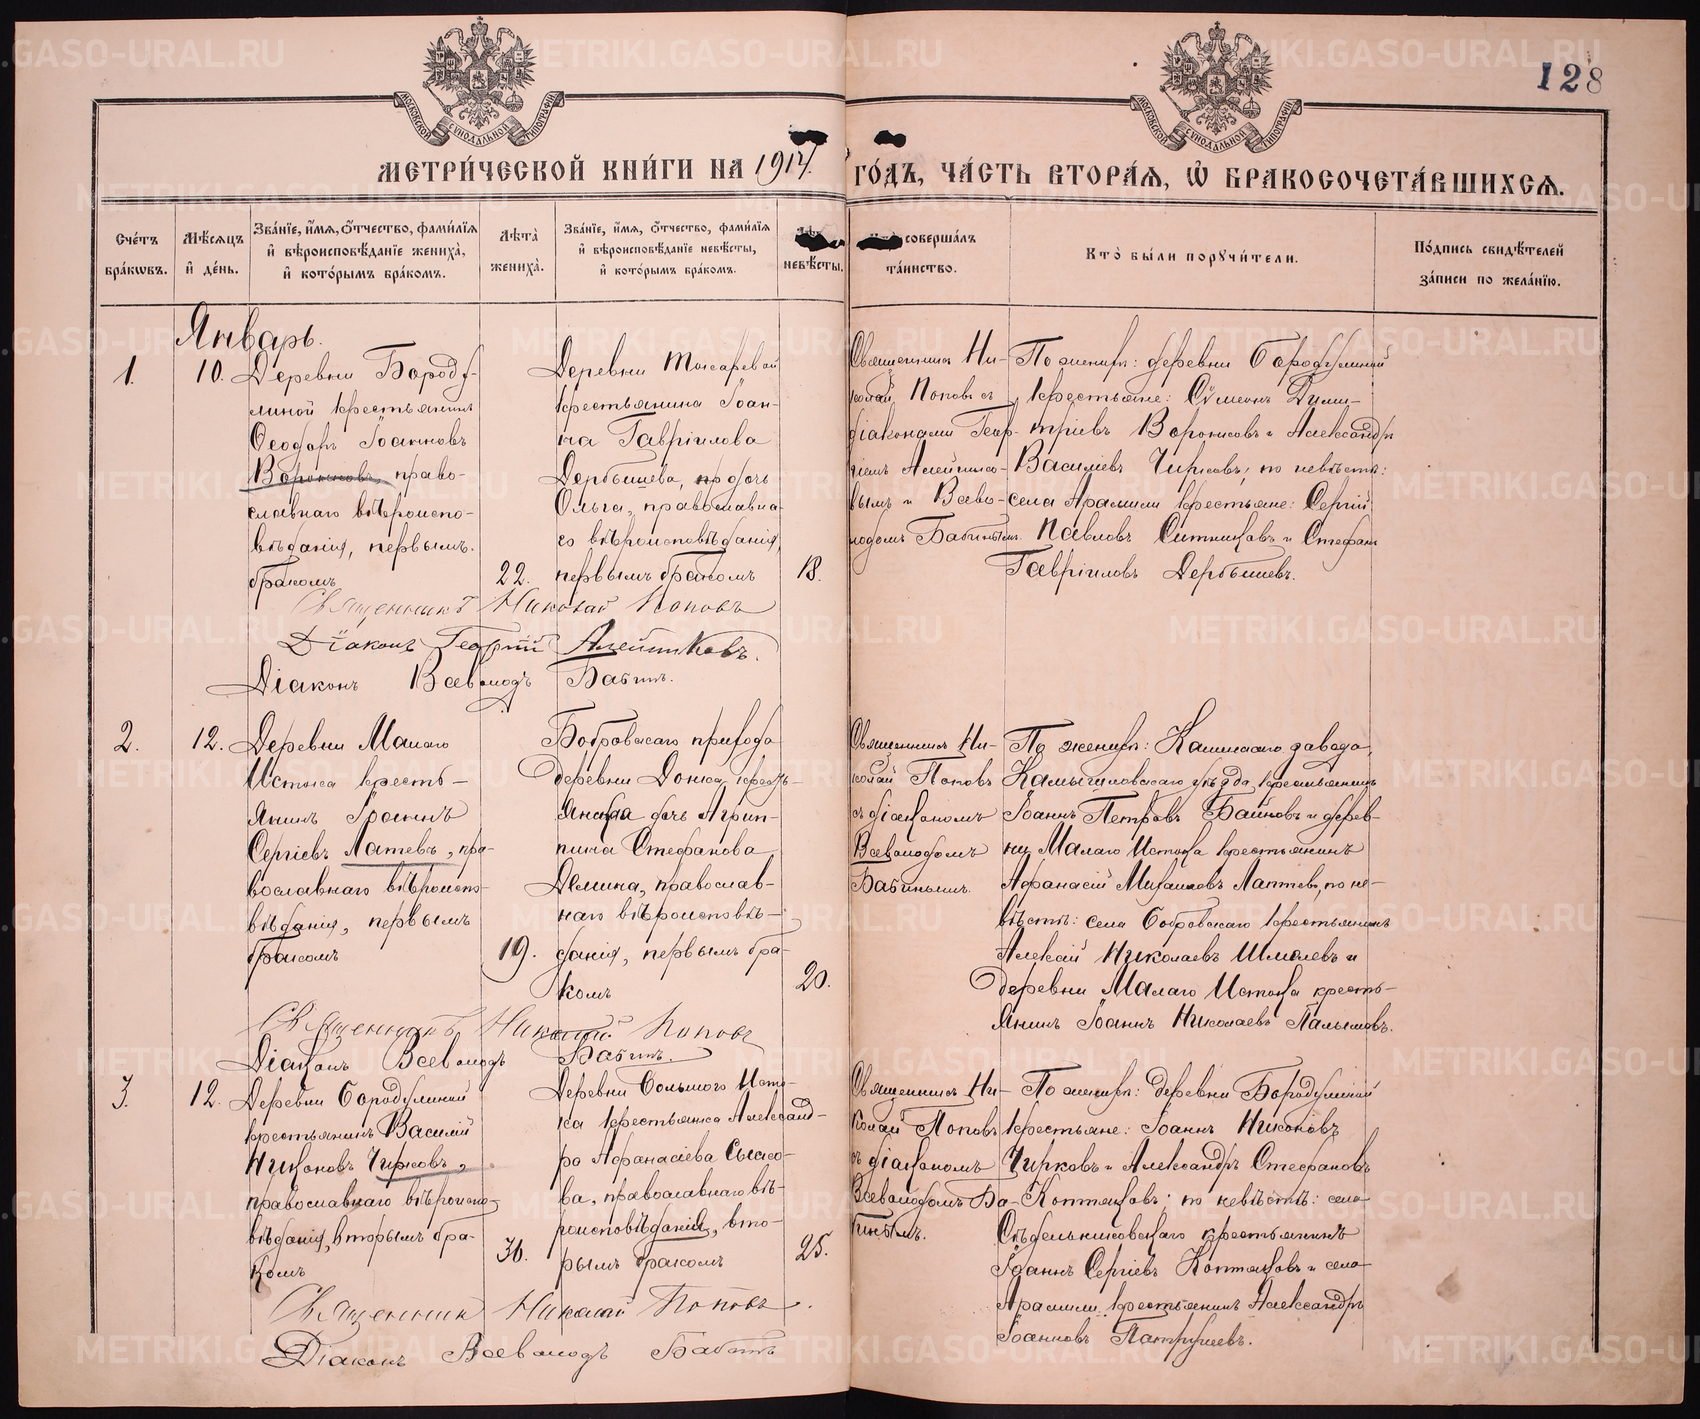 128
МЕТРИ́ЧЕСКОЙ КНИ́ГИ НА 1917. ГО́ДЪ, ЧА́СТЬ ВТОРА́Ѧ, Ѡ БРАКОСОЧЕТА́ВШИХСѦ.
Сче́тъ бра́кѡвъ.
Мѣ́сѧцъ и҆ де́нь.
Зва́нїе, и҆́мѧ, ѻ҆́тчество, фами́лїѧ и҆ вѣроисповѣ́данїе жениха̀, и҆ кото́рымъ бра́комъ.
Лѣта̀ жениха̀.
Зва́нїе, и҆́мѧ, ѻ҆́тчество, фами́лїѧ и҆ вѣроисповѣ́данїе невѣ́сты, и҆ кото́рымъ бра́комъ.
невѣ́сты.
соверша́лъ та́инство.
Кто̀ бы́ли порꙋчи́тели.
По́дпись свидѣ́телей за́писи по жела́нїю.
Январь.
1.
10.
Деревни Бороду-
линой крестьянинъ
Ѳеодоръ Іоанновъ
Воронковъ, право-
славнаго вѣроиспо-
вѣданія, первымъ
бракомъ
22.
Деревни Токаревой
крестьянина Іоан-
на Гавріилова
Дербышева, дочь
Ольга, православна-
го вѣроисповѣданія,
первымъ бракомъ
18.
Священникъ Ни-
колай Поповъ съ
діаконами Геор-
гіемъ Алейнико-
вымъ и Всево-
лодомъ Бабинымъ.
По женихѣ: деревни Бородулиной
крестьяне: Сѷмеонъ Дими-
тріевъ Воронковъ и Александръ
Василіевъ Чирковъ; по невѣстѣ:
села Арамили крестьяне: Сергій
Павловъ Ситниковъ и Стефанъ
Гавріиловъ Дербышевъ.
Священникъ Николай Поповъ
Діаконъ Георгій Алейниковъ.
Діаконъ Всеволодъ Бабинъ.
2.
12.
Деревни Малаго
Истока кресть-
янинъ Іоаннъ
Сергіевъ Латевъ, пра-
вославнаго вѣроиспо-
вѣданія, первымъ
бракомъ
19.
Бобровскаго прихода
деревни кресть-
янская дочь Агрип-
пина Стефанова
Демина, православ-
наго вѣроисповѣ-
данія, первымъ бра-
комъ
20.
Священникъ Ни-
колай Поповъ
съ діакономъ
Всеволодомъ
Бабинымъ.
По женихѣ: завода,
Камышловскаго уѣзда, крестьянинъ
Іоаннъ Петровъ Баиновъ и дерев-
ни Малаго Истока крестьянинъ
Афанасій Михаиловъ Лаптевъ, по не-
вѣстѣ: села Бобровскаго крестьянинъ
Алексій Николаевъ Шмелевъ и
деревни Малаго Истока кресть-
янинъ Іоаннъ Николаевъ
Священникъ Николай Поповъ
Діаконъ Всеволодъ Бабинъ.
3.
12.
Деревни Бородулиной
крестьянинъ Василій
Никоновъ Чирковъ,
православнаго вѣроиспо-
вѣданія, вторымъ бра-
комъ
30.
Деревни Большого Исто-
ка крестьянка Александ-
ра Афанасіева Сыско-
ва, православнаго вѣ-
роисповѣданія, вто-
рымъ бракомъ
25.
Священникъ Ни-
колай Поповъ
съ діакономъ
Всеволодомъ Ба-
бинымъ.
По женихѣ: деревни Бородулиной
крестьяне: Іоаннъ Никоновъ
Чирковъ и Александръ Стефановъ
Коптяковъ; по невѣстѣ: села
крестьянинъ
Іоаннъ Сергіевъ Коптяковъ и села
Арамили крестьянинъ Александръ
Іоанновъ Патрушевъ.
Священникъ Николай Поповъ.
Діаконъ Всеволодъ Бабинъ
METRIKI.GASO-URAL.RU